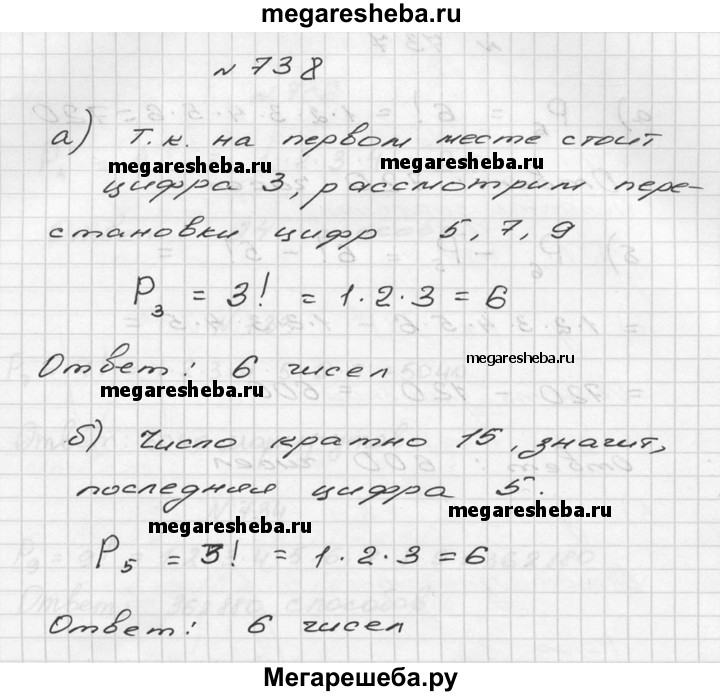 megaresheba.ru
№ 738
а) Т.к. на первом месте стоит
megaresheba.ru megaresheba.ru
цифра 3, рассмотрим пере-
становки цифр 5, 7, 9
P₃ = 3! = 1·2·3 = 6
Ответ: 6 чисел
megaresheba.ru
megaresheba.ru
б) Число кратно 15, значит,
последняя цифра 5.
megaresheba.ru
megaresheba.ru
P₅ = 3! = 1·2·3 = 6
Ответ: 6 чисел
Мегарешеба.ру